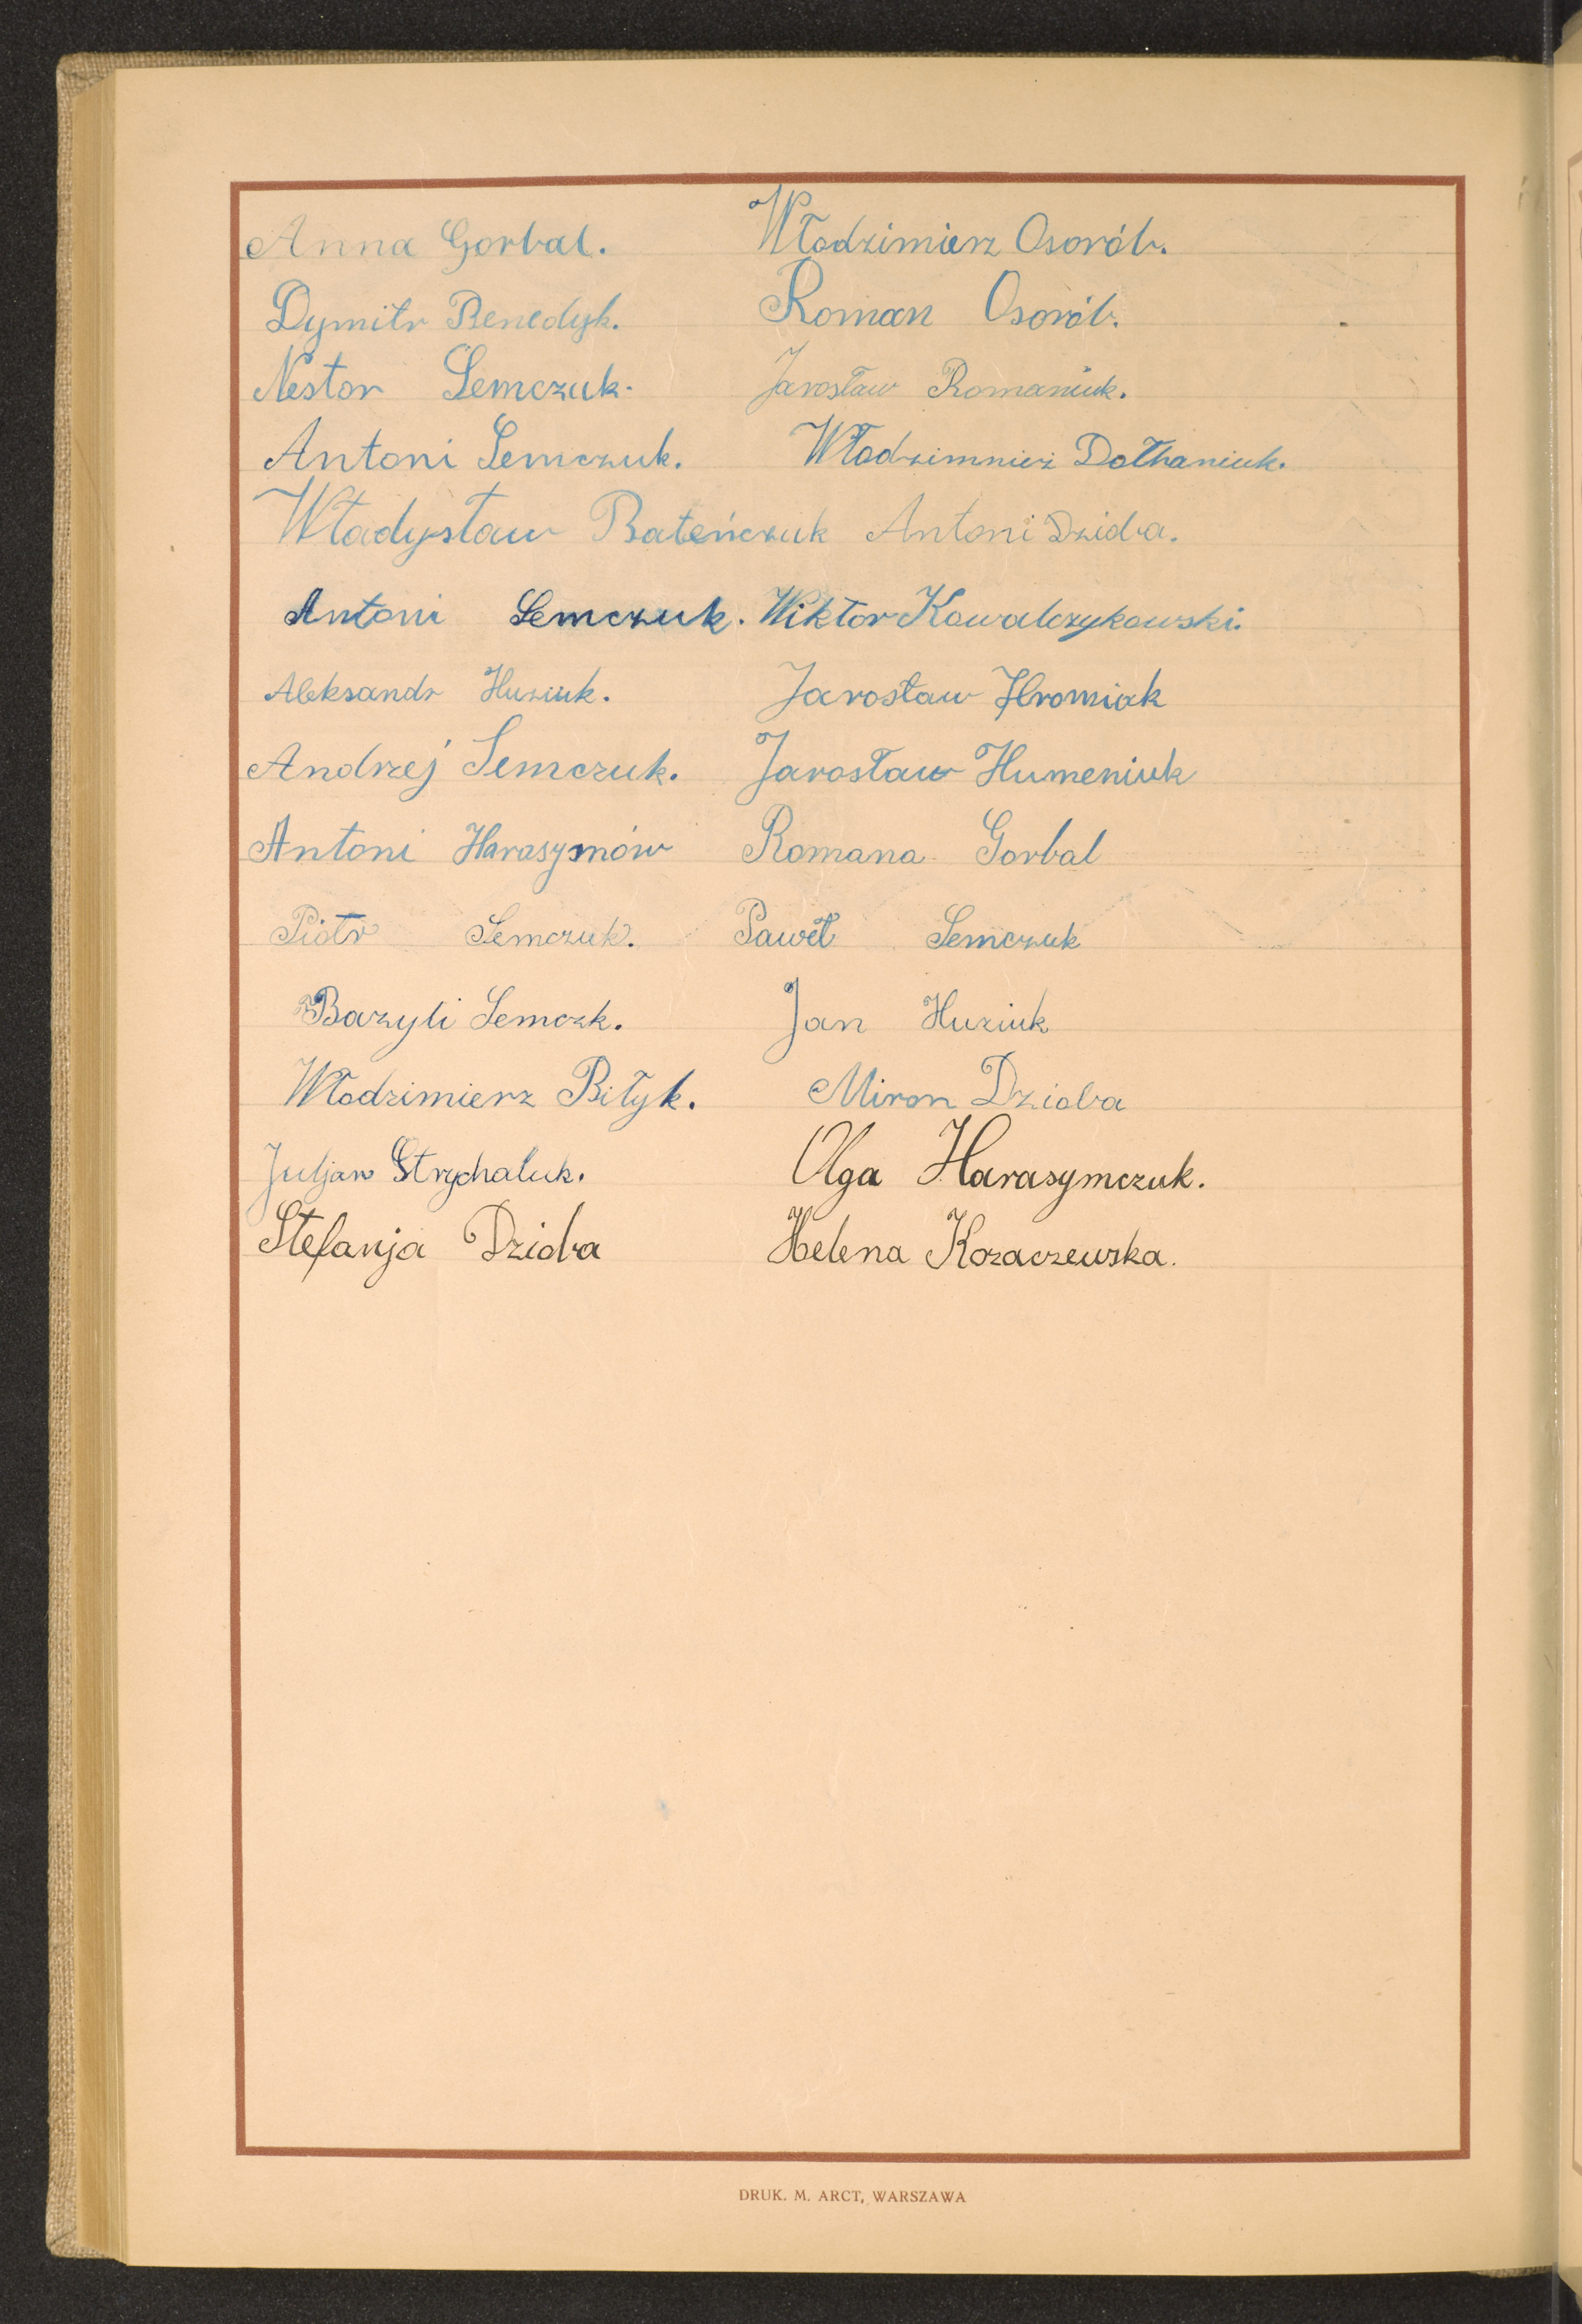 Anna Gorbal. Włodzimierz Osorób.
Dymitr Benedyk. Roman Osorób.
Nestor Semczuk. Jarosław Romaniuk.
Antoni Semczuk. Włodzimnież Dołhaniuk.
Władysław Bateńczuk Antoni Dzioba.
Antoni Semczuk. Wiktor Kowalczykowski.
Aleksandr Huziuk. Jarosław Hromiak
Andrzej Semczuk. Jarosław Humeniuk
Antoni Harasymów Romana Gorbal
Piotr Semczuk. Paweł Semczuk
Bazyli Semczk. Jan Huziuk
Włodzimierz Biłyk. Miron Dzioba
Juljan Strychaluk. Olga Harasymczuk.
Stefanja Dzioba Helena Kozaczewska.
DRUK. M. ARCT, WARSZAWA